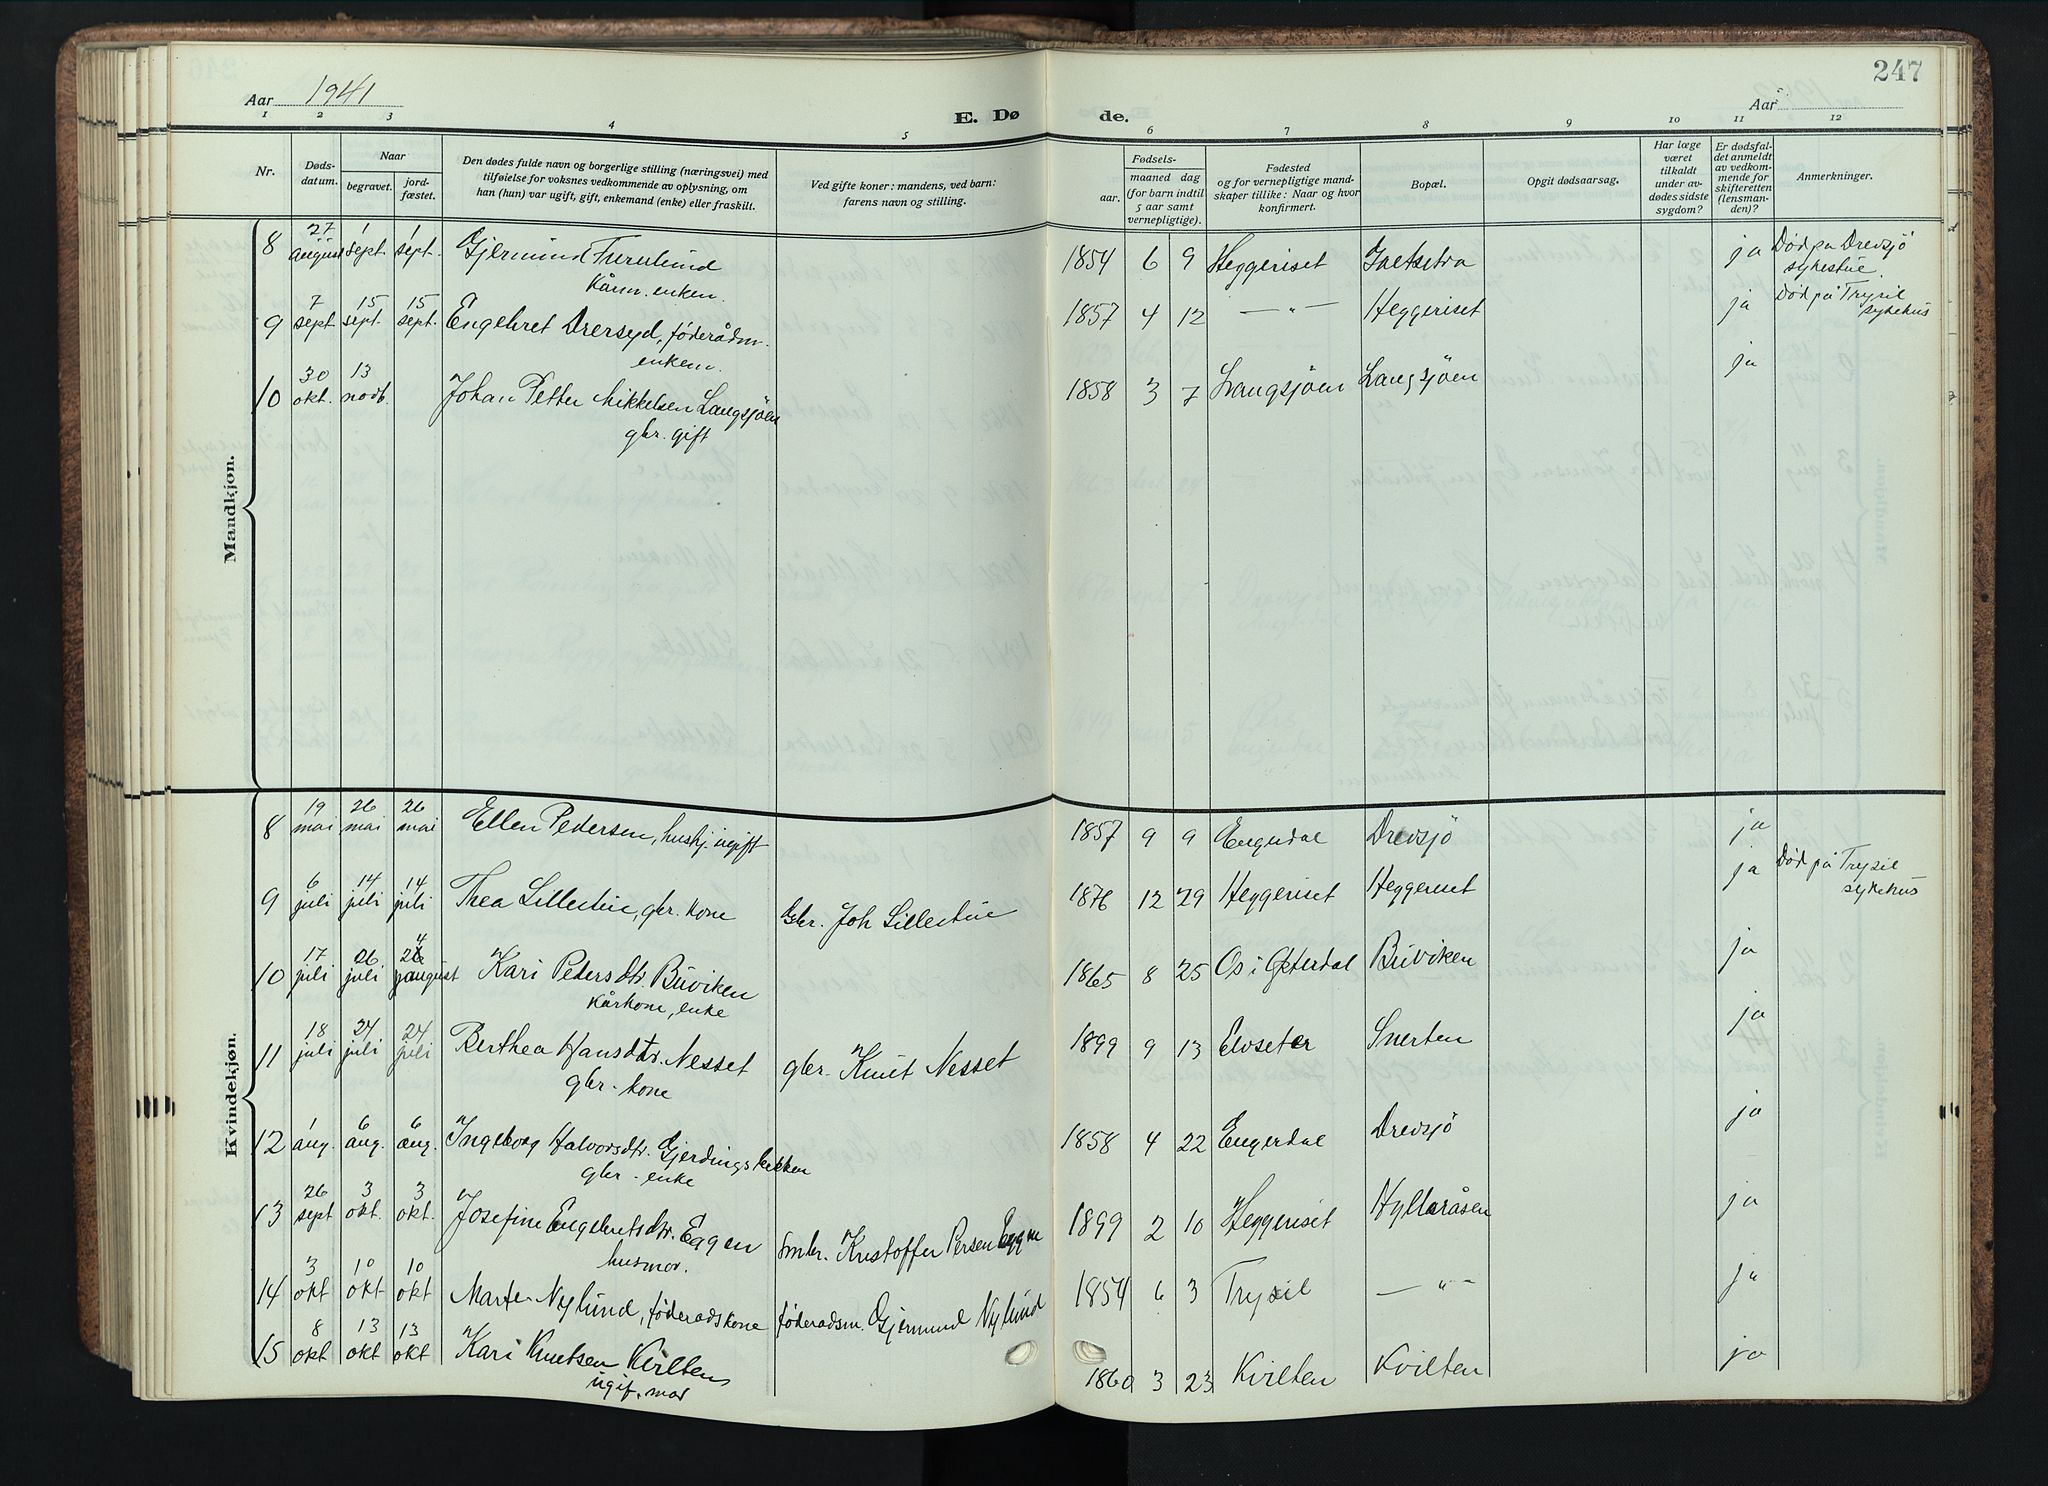 247
Aar 1941
Aar
E. Dø de.
1 2 3 4 5 6 7 8 9 10 11 12
Nr.
Dødsdatum.
Naar
begravet.
jordfæstet.
Den dødes fulde navn og borgerlige stilling (næringsvei) med
tilføielse for voksnes vedkommende av oplysning, om
han (hun) var ugift, gift, enkemand (enke) eller fraskilt.
Ved gifte koner: mandens, ved barn:
farens navn og stilling.
Fødsels-
aar.
maaned dag
(for barn indtil
5 aar samt
vernepligtige).
Fødested
og for vernepligtige mand-
skaper tillike: Naar og hvor
konfirmert.
Bopæl.
Opgit dødsaarsag.
Har læge
været
tilkaldt
under av-
dødes sidste
sygdom?
Er dødsfal-
det anmeldt
av vedkom-
mende for
skifteretten
(lensman-
den)?
Anmerkninger.
Mandkjøn.
8 27 august 1 sept 1 sept. Gjermund Furulund 1854 6 9 Heggeriset ja Død på Drevsjö
Kårm. enkem. sykestue.
9 7 sept 15 sept. 15 sept. Engebret Drersyd, föderådm. 1857 4 12 — " — Heggeriset ja Död på Trysil
enkem. sykehus
10 30 okt. 13 novb. Johan Petter Mikkelsen Langsjöen 1858 3 7 Langsjöen Langsjöen ja
gbr. gift
Kvindekjøn.
8 19 mai 26 mai 26 mai Ellen Pedersen, hushj. ugift 1857 9 9 Engerdal Drevsjö ja
9 6 juli 14 juli 14 juli Thea Lillestue, gbr. kone Gbr. Joh Lillestue 1876 12 29 Heggeriset Heggeriset ja Död på Trysil
sykehus
10 17 juli 26 juli 4 august Kari Pedersdtr. Buviken 1865 8 25 Os i Østerdal Buviken ja
kårkone, enke
11 18 juli 24 juli 24 juli Berthea Hansdtr. Nesset gbr. Knut Nesset 1899 9 13 Elvseter Snerten ja
gbr. kone
12 1 aug. 6 aug. 6 aug. Ingeborg Halvorsdtr. Gjerdingsbakken 1858 4 22 Engerdal Drevsjö ja
gbr. enke
13 26 sept 3 okt. 3 okt. Josefine Engebretsdtr. Eggen Smbr. Kristoffer Persen Eggen 1899 2 10 Heggeriset Hylleråsen ja
husmor.
14 3 okt 10 okt 10 okt Marte Nylund, föderadskone föderadsm. Gjermund Nylund 1854 6 3 Trysil — " — ja
15 8 okt 13 okt 13 okt Kari Knutsen Kvilten 1860 3 23 Kvilten Kvilten ja
ugif. mor